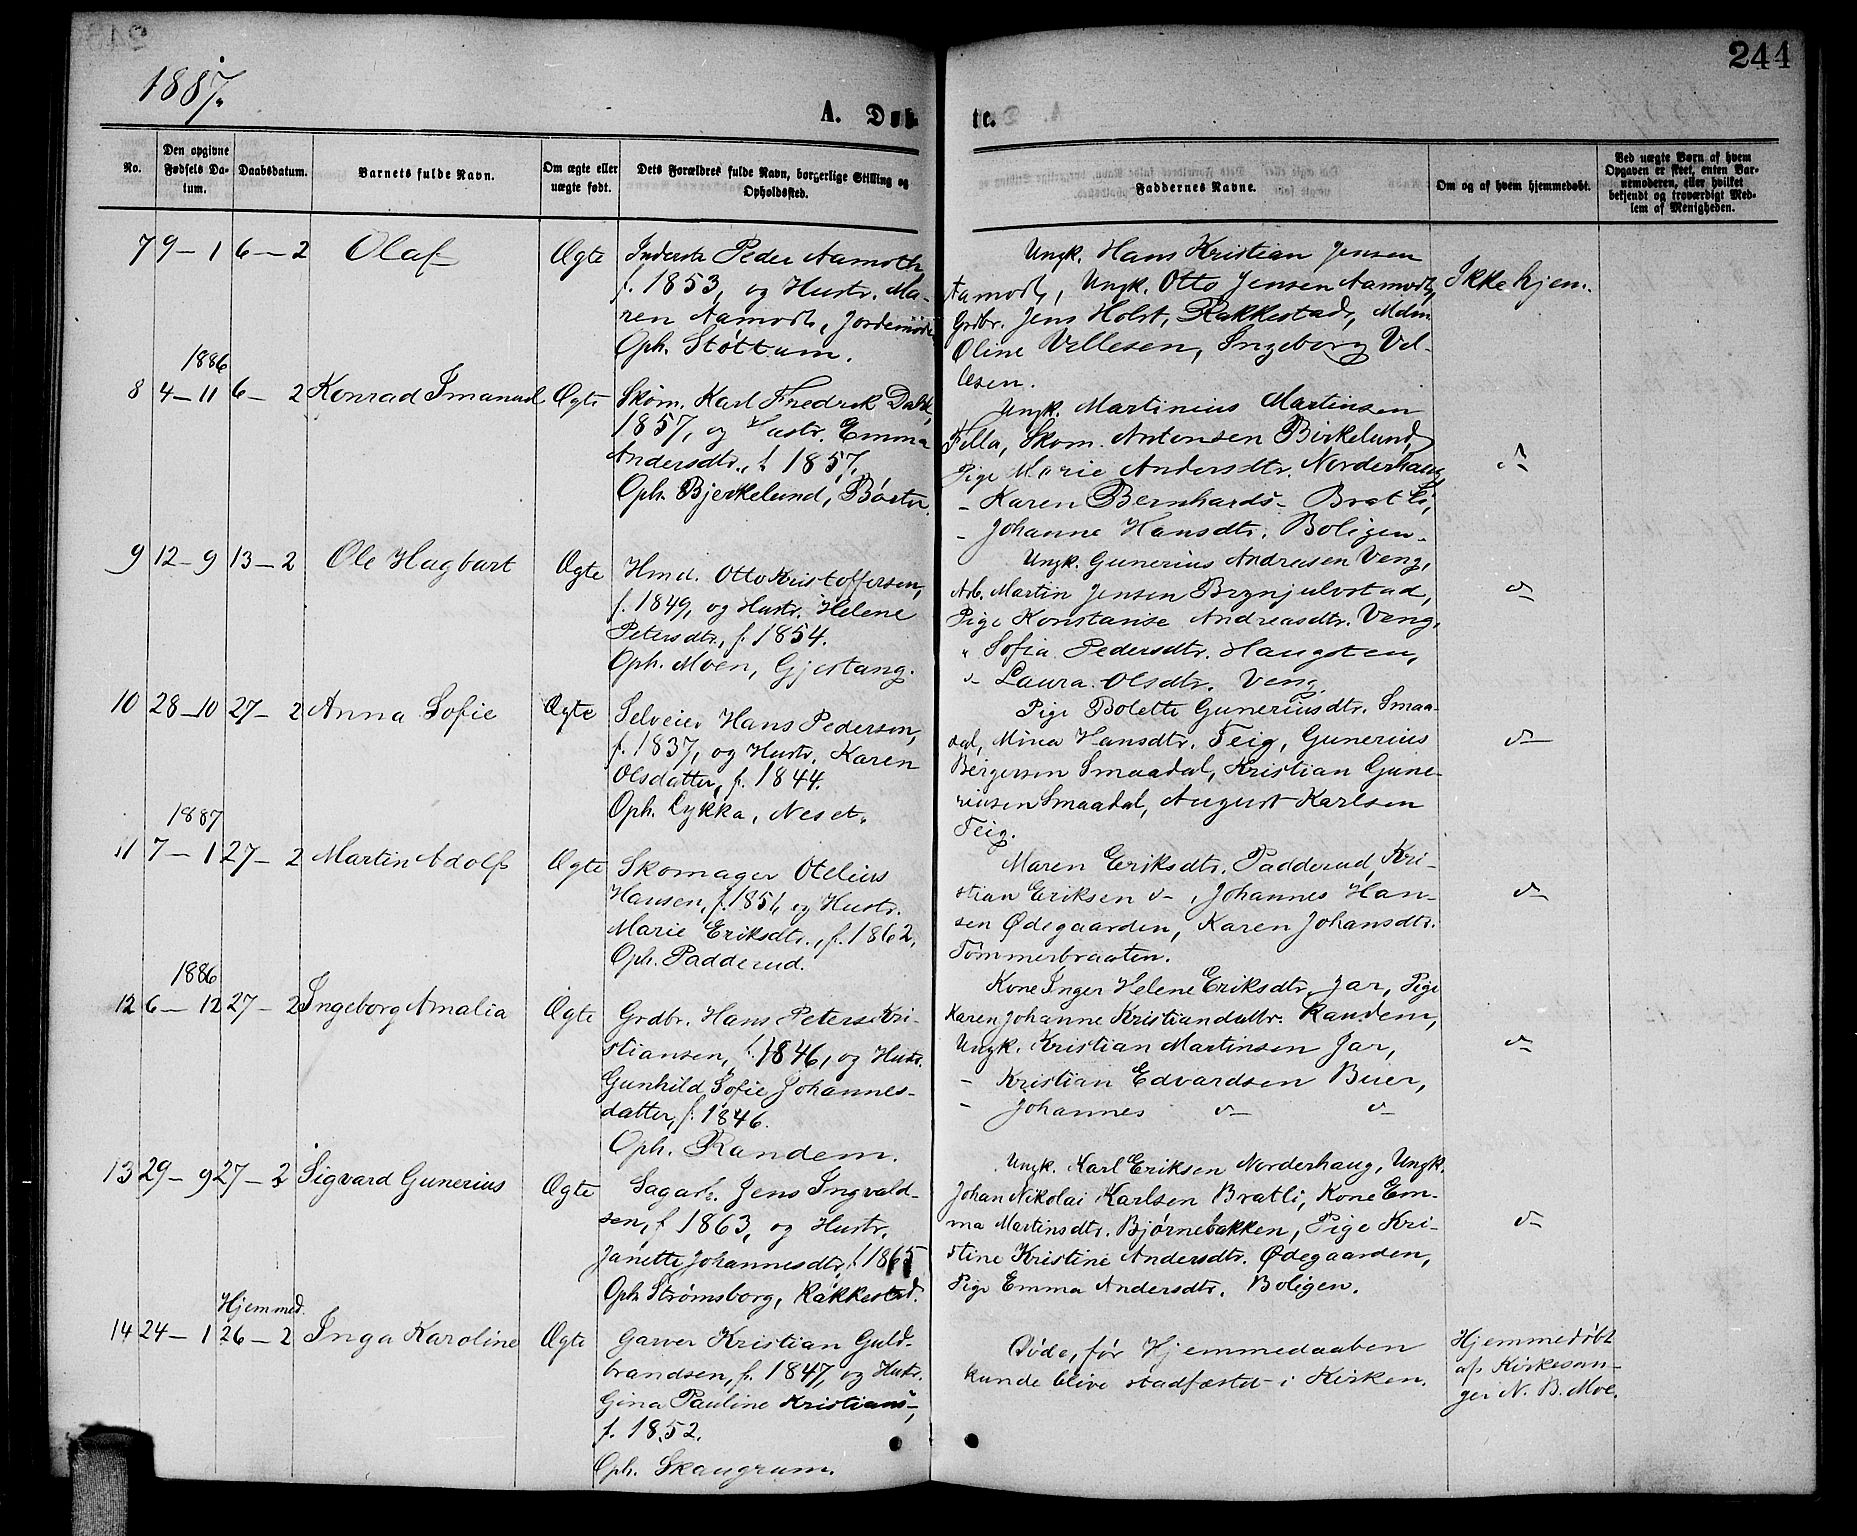 244
1887.
A. Døbte.
No.
Den opgivne Fødsels Da-tum.
Daabsdatum.
Barnets fulde Navn.
Om ægte eller uægte født.
Dets Forældres fulde Navn, borgerlige Stilling og Opholdssted.
Faddernes Navne.
Om og af hvem hjemmedøbt.
Ved uægte Børn af hvem Opgaven er skeet, enten Bar-nemoderen, eller hvilket bekjendt og troværdigt Med-lem af Menigheden.
7 9-1 6-2 Olaf Ægte
Inderste Peder Aamodt,
f. 1853, og Hustr. Ma-
ren Aamodt, Jordemoder
Oph. Støttum.
Ungk. Hans Kristian Jensen
Aamodt, Ungk. Otto Jensen Aamodt,
Grdbr. Jens Holst, Rakkestad, Mdm
Oline Villesen, Ingeborg Vil-
lesen.
Ikke hjem.
1886
8 4-11 6-2 Konrad Imanuel Ægte
Skom. Karl Fredrik Dahl,
1857, og Hustr. Emma
Andersdtr., f. 1857.
Oph. Bjerkelund, Børter.
Ungk. Martinius Martinsen
Fella, Skom. Antonsen Birkelund,
Pige Marie Andersdtr. Norderhaug
- Karen Bernhards- Bratli,
- Johanne Hansdtr. Boligen.
d-
9 12-9 13-2 Ole Hagbart Ægte
Hmd. Otto Kristoffersen,
f. 1849, og Hustr. Helene
Petersdtr, f. 1854.
Oph. Moen, Gjestang.
Ungk. Gunerius Andreasen Veng,
Arb. Martin Jensen Brynjulvstad,
Pige Konstanse Andreasdtr. Veng,
" Sofia Pedersdtr. Haugsten,
d- Laura Olsdtr. Veng.
d-
10 28-10 27-2 Anna Sofie Ægte
Selveier Hans Pedersen,
f. 1837, og Hustr. Karen
Olsdatter, f. 1844.
Oph. Lykka, Neset.
Pige Bolette Guneriusdtr. Smaa-
dal, Mina Hansdtr. Teig, Gunerius
Bergersen Smaadal, Kristian Gune-
riusen Smaadal, August Karlsen
Teig.
d-
1887
11 7-1 27-2 Martin Adolf Ægte
Skomager Otelius
Hansen, f. 1851, og Hustr.
Marie Eriksdtr., f. 1862,
Oph. Padderud.
Maren Eriksdtr. Padderud, Kri-
stian Eriksen d-, Johannes Han-
sen Ødegaarden, Karen Johansdtr.
Tømmerbraaten.
d-
1886
12 6-12 27-2 Ingeborg Amalia Ægte
Grdbr. Hans Peters Kri-
stiansen, f. 1846, og Hustr.
Gunhild Sofie Johannes-
datter, f. 1846.
Oph. Randem.
Kone Inger Helene Eriksdtr. Jar, Pige
Karen Johanne Kristiandattr. Randem,
Ungk. Kristian Martinsen Jar,
- Kristian Edvardsen Beier,
- Johannes d- d-
d-
13 29-9 27-2 Sigvard Gunerius Ægte
Sagarb. Jens Ingvald-
sen, f 1863, og Hustr.
Janette Johannesdtr, f. 1865
Oph. Strømsborg, Rakkestad.
Ungk. Karl Eriksen Norderhaug, Ungk.
Johan Nikolai Karlsen Bratli, Kone Em-
ma Martinsdtr. Bjørnebakken, Pige Kri-
stine Kristine Andersdtr. Ødegaarden,
Pige Emma Andersdtr. Boligen.
d-
Hjemmed.
14 24-1 26-2 Inga Karoline Ægte
Garver Kristian Guld-
brandsen, f. 1847, og Hustr.
Gina Pauline Kristians-,
f. 1852.
Oph. Skaugrum.
Døde, før Hjemmedaaben
kunde blive stadfæstet i Kirken.
Hjemmedøbt
af Kirkesan-
ger N. B. Moe.